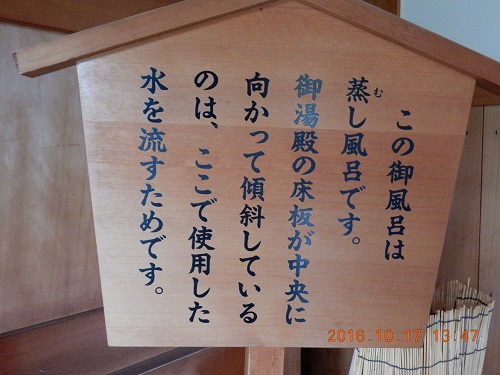 この御風呂は
蒸し風呂です。
む
御湯殿の床板が中央に
向かって傾斜している
のは、ここで使用した
水を流すためです。
2016.10.17 13:47